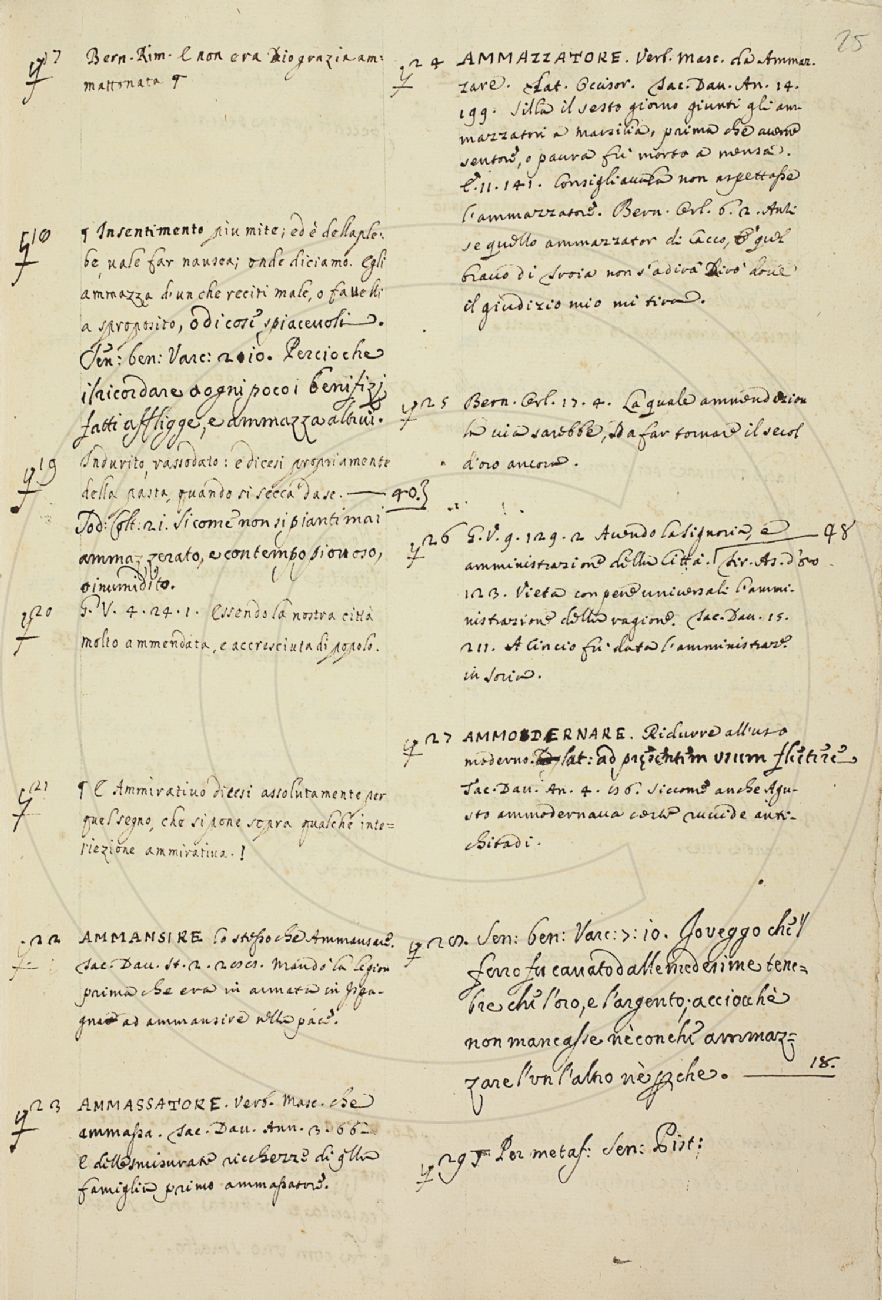 25
17 Bern. Rim. E non era Dio grazia am:
mattonata ¶
18 ¶ In sentimento piu mite; ed è della ple:
be, vale far nausea; onde diciamo. Egli
ammazza d'un che reciti male, o favelli
a sproposito, o di cose spiacevoli.
Sen: ben: Varc: 2.10. Percioche
il ricordare ogni poco i benifizj
fatti affligge, e ammazza altrui.
19 Indurito, rassodato: e dicesi propriamente
della pasta, quando si secca da se. — 40.}
Pod: Colt: 21. Sicome non si pianti mai
ammazzerato, e con tempo piovoso,
o inumidito.
20 G. V. 4. 24. 1. Essendo la nostra città
molto ammendata, e accresciuta di popolo.
21 ¶ E Ammirativo dicesi assolutamente per
quel segno, che si pone sopra qualche inte=
riezione ammirativa. !
22 AMMANSIRE lo stesso che Ammansare.
Tac. Dav. St. 2. Mandò la legion
prima che era in armata in Ispa-
gna ad ammansire nella pace.
23 AMMASSATORE. Verb. Masc. che
ammassa. Tac. Dav. Ann. 3. 66
E delle smisurate ricchezze di qlla
famiglia primo ammassatore.
24 AMMAZZATORE. Verb. Masc. da Ammaz.
zare. Lat. Occisor. Tac. Dav. An. 14.
199. Silla il sesto giorno giunti gli am
mazzatori a Marsilia, prima che averne
sentore, o paura fu morto a mensa.
E. 11. 141. Consigliavala non aspettasse
l'ammazzatore. Bern. Orl. 6. 2. Anzi
se quello ammazzator di Cacco, E quel
bravo di Troia non s'adira Dirò dove
il giudizio mio mi tira.
25 Bern. Orl. 17. 4. La quale ammendazion
la via sarebbe, Da far tornare il secol
d'oro ancora.
26 G. V. 9. 129. 2 Avendo la signoria, e — 48
amministrazione della Città. Fir. As. d'oro
123. Vieta con pene universali l'ammi-
nistrazione della ragione. Tac. Dav. 15.
211. A Cincio fu data l'amministraz.e
in Soria.
27 AMMODERNARE. Ridurre all'uso
moderno. lat: ad presentem usum flectere
Tac. Dav. An. 4. 96. Siccome anche Agu-
sto ammodernava certe ruvide anti-
chitadi.
28. Sen: ben: Varc: 7: 10. Io veggo che 'l
ferro fu cavato dalle medesime tene=
bre che l'oro, e l'argento; acciochè
non mancasse nè con che ammaz=
zare l'un l'altro nè pche. — 18.
29 ¶ Per metaf: Sen: Pist: